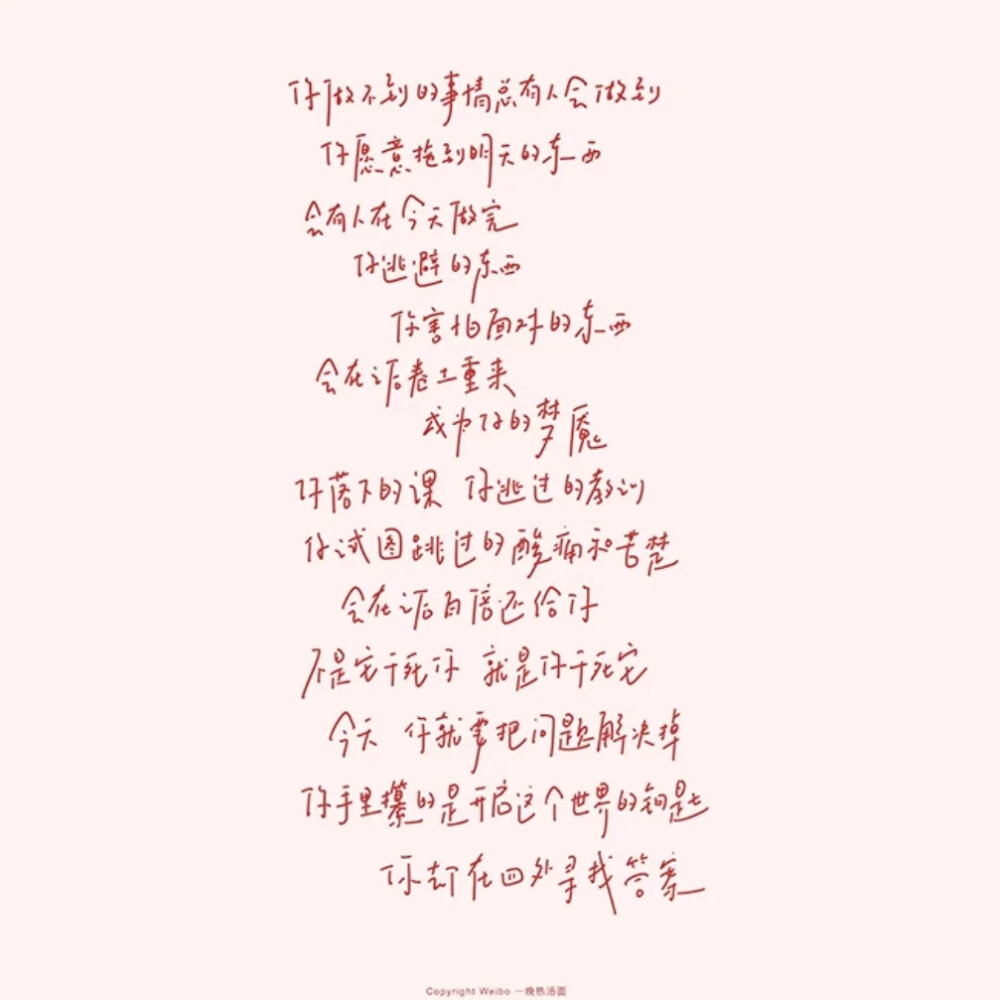 你做不到的事情总有人会做到
你愿意拖到明天的东西
会有人在今天做完
你逃避的东西
你害怕面对的东西
会在之后卷土重来
成为你的梦魇
你落下的课 你逃过的教训
你试图跳过的酸痛和苦楚
会在之后百倍还给你
不是它干死你 就是你干死它
今天 你就要把问题解决掉
你手里攥的是开启这个世界的钥匙
你却在四处寻找答案
Copyright Weibo 一晚热汤面